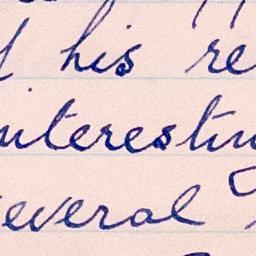 his re
interestin
several